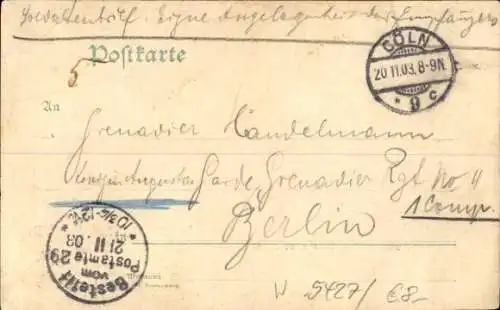 Soldatenbrief. Eigne Angelegenheit des Empfängers
Postkarte
CÖLN
20.11.03. 8-9N.
* 9 c
5
An
Grenadier Handelmann
Königin Augusta Garde Grenadier Rgt No 4
1 Comp.
Berlin
Bestellt
vom
Postamte 29
21 11 03
W 5427/ €8-